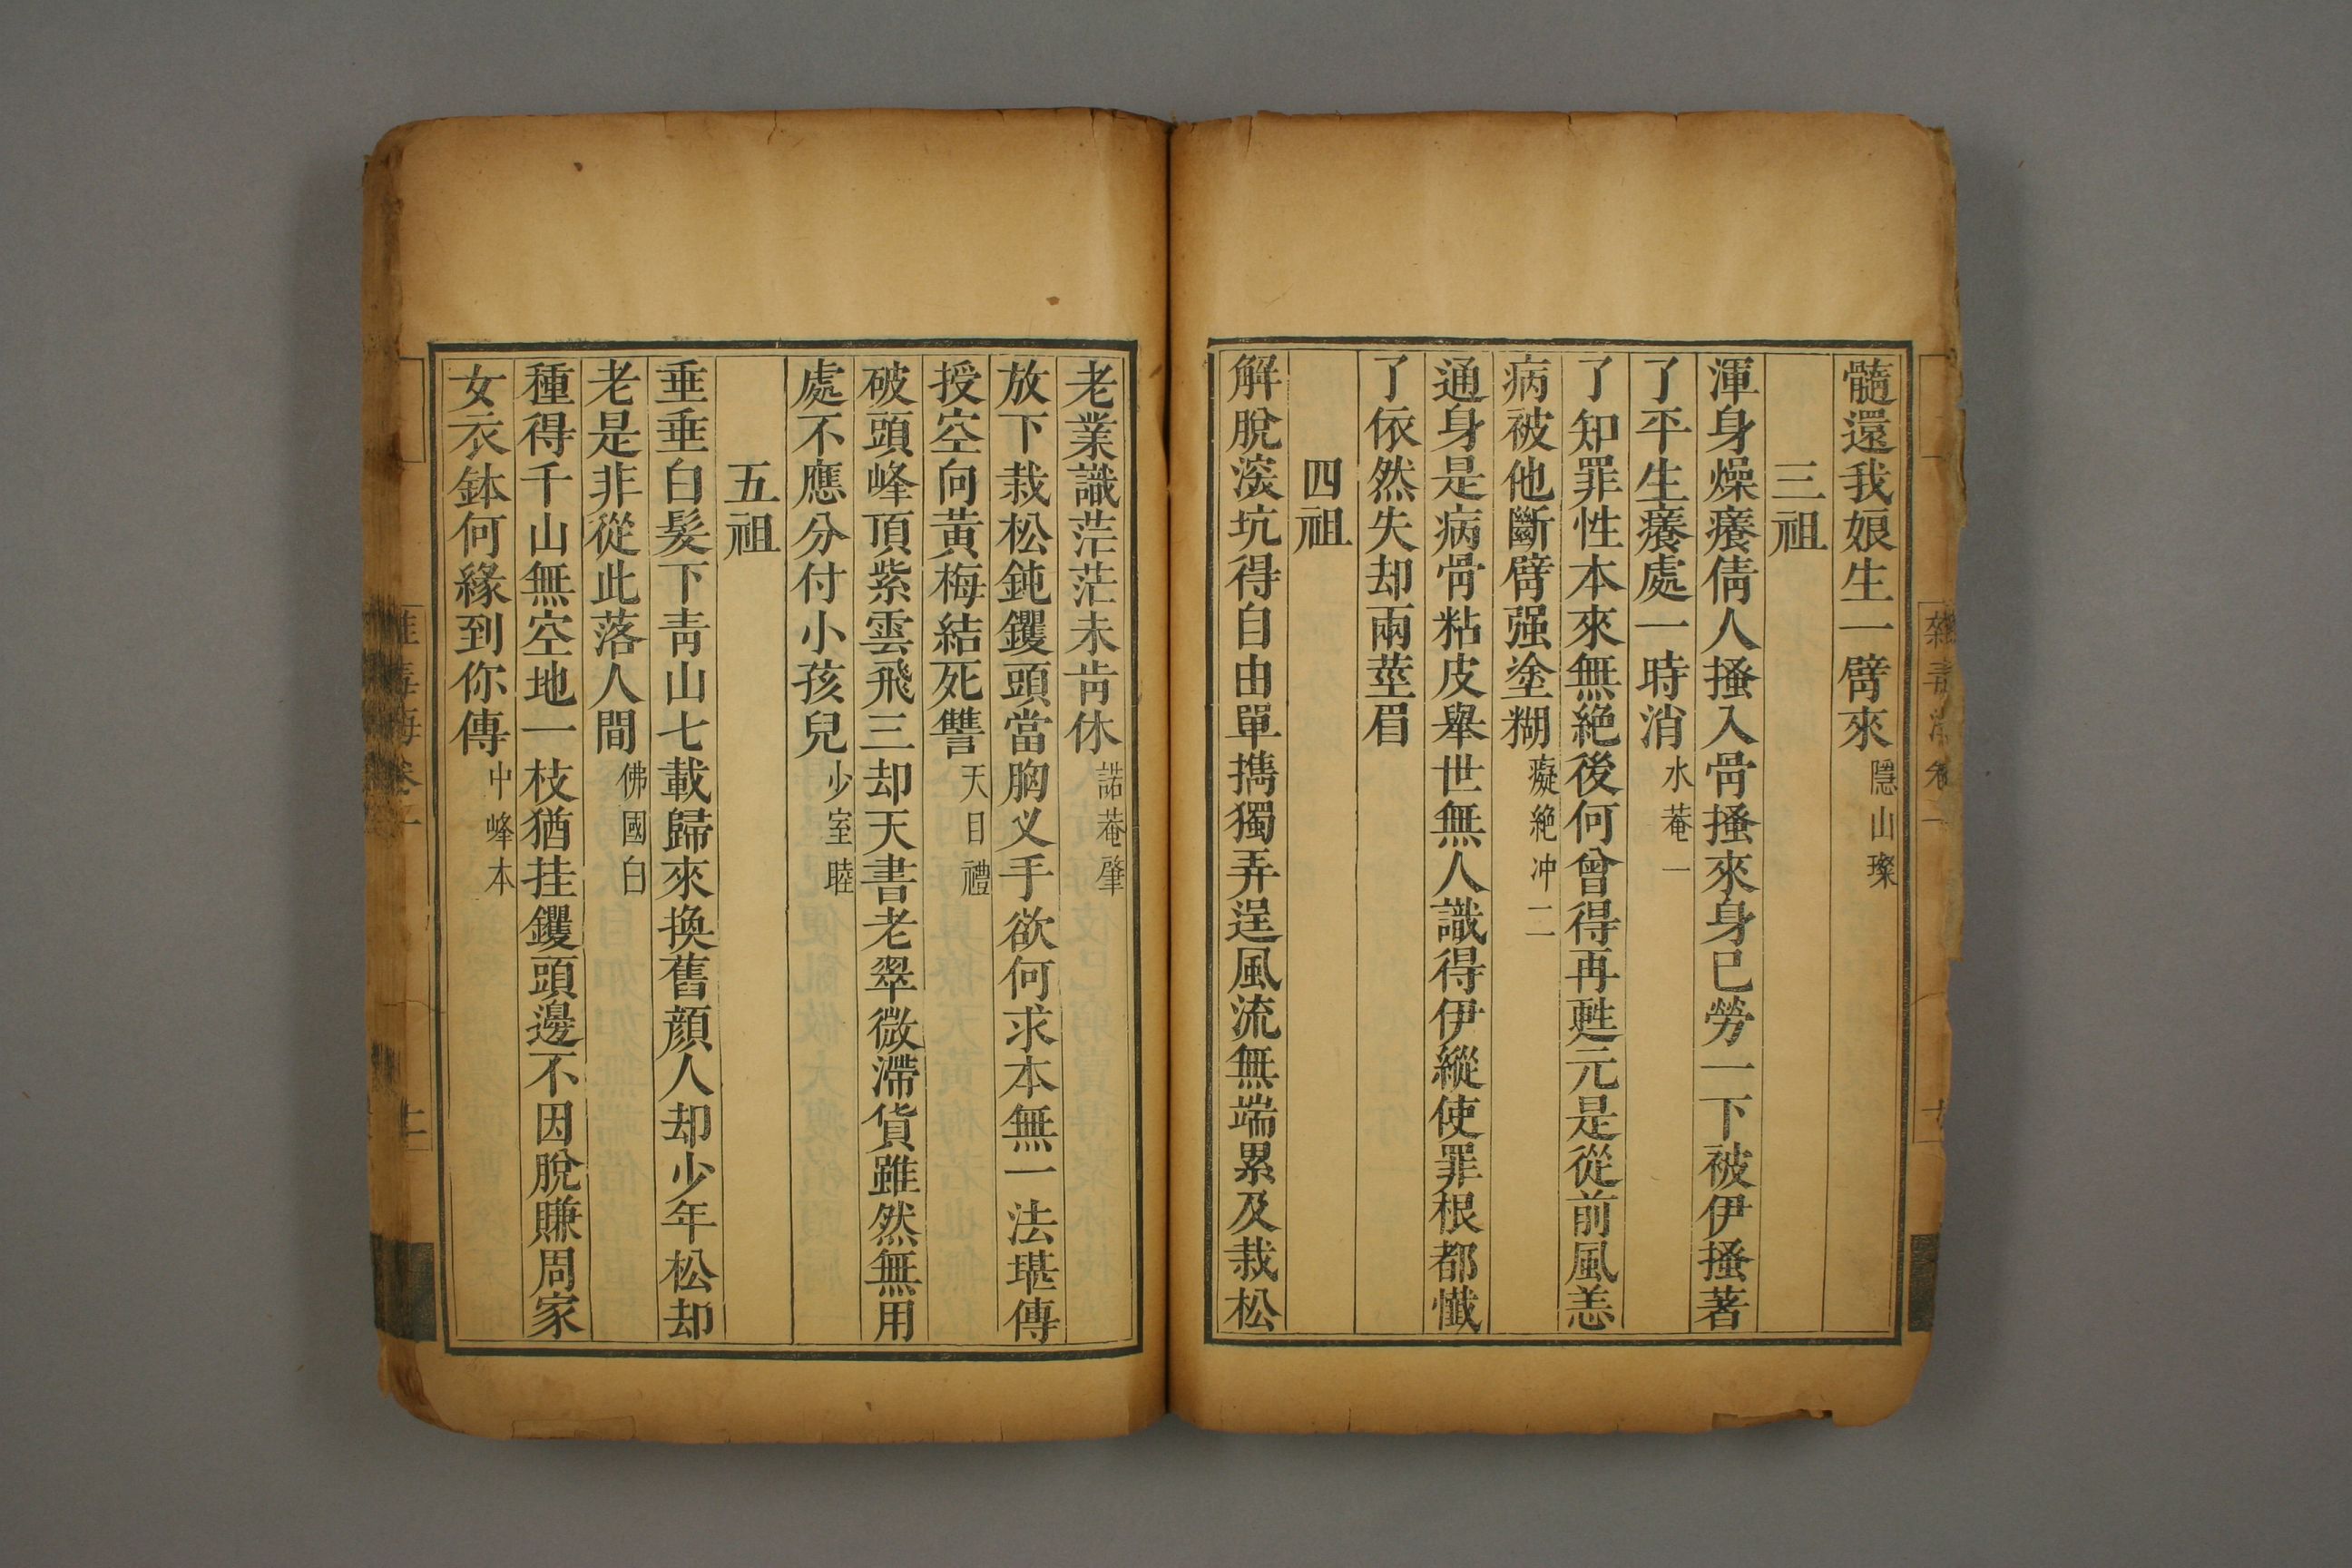 髓還我娘生一臂來 隱山璨
三祖
渾身燥癢倩人搔入骨搔來身已勞一下被伊搔著
了平生癢處一時消 水菴一
了知罪性本來無絶後何曾得再甦元是從前風恙
病被他斷臂强塗糊 癡絶冲二
通身是病骨粘皮舉世無人識得伊縱使罪根都懺
了依然失却兩莖眉
四祖
解脫深坑得自由單擕獨弄逞風流無端累及栽松
老業識茫茫未肯休 諾菴肇
放下栽松鈍钁頭當胸义手欲何求本無一法堪傳
授空向黃梅結死讐 天目禮
破頭峰頂紫雲飛三却天書老翠微滯貨雖然無用
處不應分付小孩兒 少室睦
五祖
垂垂白髮下靑山七載歸來換舊顔人却少年松却
老是非從此落人間 佛國白
種得千山無空地一枝猶挂钁頭邊不因脫賺周家
女衣鉢何緣到你傳 中峰本